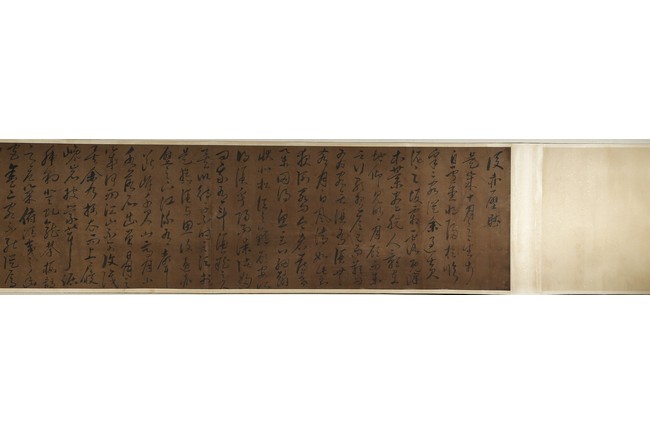 後赤壁賦
是歲十月之望步
自雪堂將歸於臨
皋二客從予過黃
泥之坂霜露既降
木葉盡脫人影在
地仰見明月顧而樂
之行歌相答已而歎曰
有客無酒有酒無
肴月白風清如此良
夜何客曰今者薄暮
舉網得魚巨口細鱗
狀如松江之鱸
得酒乎歸而謀諸婦
婦曰我有斗酒藏之
久矣以待子不時之需於
是攜酒與魚復遊於赤
壁之下江流有聲
斷岸千尺山高月小
水落石出曾日月之
幾何而江山不可復識
矣予乃攝衣而上履
巉巖披蒙茸踞虎
豹登虬龍攀栖鶻
之危巢俯馮夷之幽
宮蓋二客不能從焉